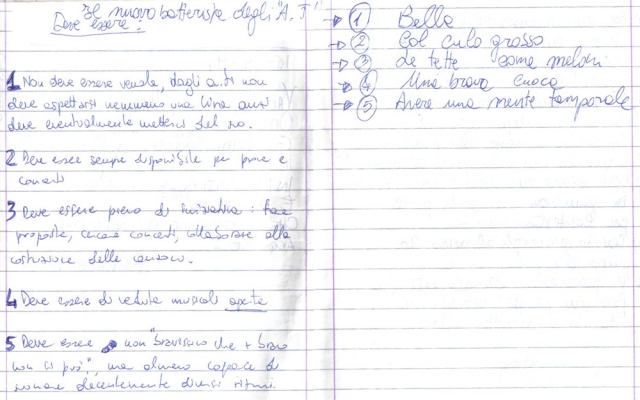 Il nuovo batterista degli "A.T"
Deve essere:
1 Non deve essere venale, dagli a.ti non
deve aspettarsi nemmeno una lira anzi
deve eventualmente metterci del suo.
2 Deve essere sempre disponibile per prove e
concerti
3 Deve essere pieno di iniziativa: fare
proposte, cercare concerti, collaborare alla
costruzione delle canzoni.
4 Deve essere di vedute musicali aperte
5 Deve essere non "bravissimo che + bravo
non si può", ma almeno capace di
suonare decentemente diversi ritmi.
① Bella
② Col culo grosso
③ Le tette come meloni
④ Una brava cuoca
⑤ Avere una mente temporale